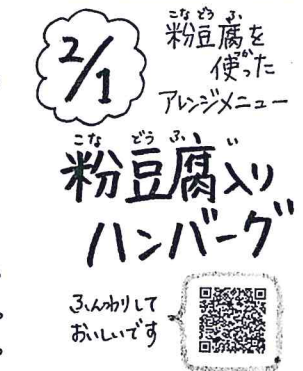 2/1
粉豆腐を
使った
アレンジメニュー
粉豆腐入り
ハンバーグ
ふんわりして
おいしいです